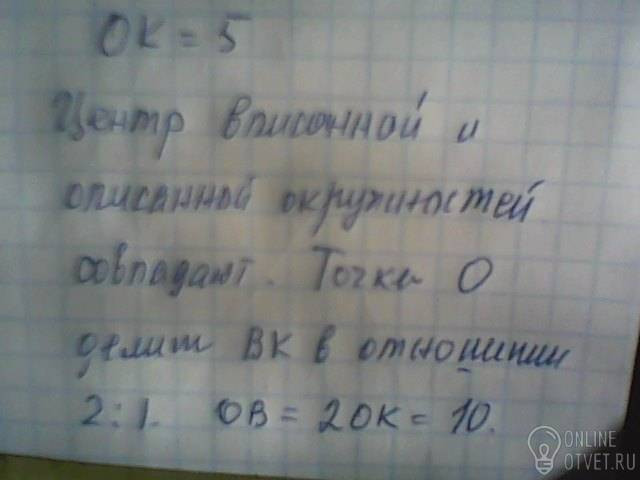 OK = 5
Центр вписанной и
описанной окружностей
совпадают. Точка O
делит BK в отношении
2:1. OB = 2OK = 10.
ONLINE
OTVET.RU